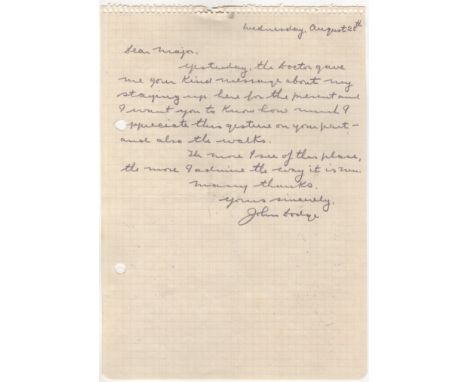 Wednesday, August 28th
Dear Major.
Yesterday, the Doctor gave
me your kind message about my
staying up here for the present and
I want you to know how much I
appreciate this gesture on your part -
and also the walks.
The more I see of this place,
the more I admire the way it is run.
Many thanks.
Yours sincerely,
John Dodge